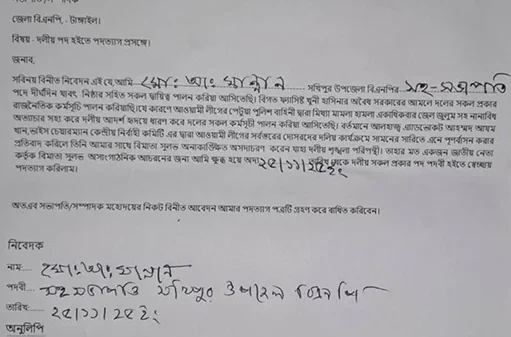 জেলা বিএনপি, - টাঙ্গাইল।
বিষয় - দলীয় পদ হইতে পদত্যাগ প্রসঙ্গে।
জনাব,
সবিনয় বিনীত নিবেদন এই যে,আমি মোঃ আঃ মান্নান সখিপুর উপজেলা বিএনপির সহ-সভাপতি
পদে দীর্ঘদিন যাবৎ নিষ্ঠার সহিত সকল দায়িত্ব পালন করিয়া আসিতেছি। বিগত ফ্যাসিষ্ট খুনী হাসিনার অবৈধ সরকারের আমলে দলের সকল প্রকার
রাজনৈতিক কর্মসূচি পালন করিয়াছি।যে কারণে আওয়ামী লীগের পেটুয়া পুলিশ বাহিনী দ্বারা মিথ্যা মামলা হামলা একাধিকবার জেল জুলুম সহ নানাবিধ
অত্যাচার সহ্য করে দলীয় আদর্শ হৃদয়ে ধারণ করে দলের সকল কর্মসূচী পালন করিয়া আসিতেছি। বর্তমানে আলহাজ্ব এ্যাডভোকেট আহম্মদ আযম
খান,ভাইস চেয়ারম্যান কেন্দ্রীয় নির্বাহী কমিটি এর দ্বারা আওয়ামী লীগের সর্বস্তরের দোসরদের দলিয় কার্যক্রমে সামনের সারিতে এনে পূণর্বাসন করার
প্রতিবাদ করিলে তিনি আমার সাথে বিমাতা সুলভ অনাকাঙ্ক্ষিত অসদাচরণ করেন যাহা দলীয় শৃঙ্খলা পরিপন্থী। তাহার মত একজন জাতীয় নেতা
কর্তৃক বিমাতা সুলভ অসাংগঠনিক আচরনের জন্য আমি ক্ষুব্ধ হয়ে অদ্য ২৫/১১/২৫ইং তারিখ থেকে দলীয় সকল প্রকার পদ পদবী হইতে স্বেচ্ছায়
পদত্যাগ করিলাম।
অতএব সভাপতি/সম্পাদক মহোদয়ের নিকট বিনীত আবেদন আমার পদত্যাগ পত্রটি গ্রহণ করে বাধিত করিবেন।
নিবেদক
নাম.... মোঃ আঃ মান্নান
পদবী.... সহ সভাপতি সখিপুর উপজেলা বিএনপি
তারিখ.... ২৫/১১/২৫ইং
অনুলিপি